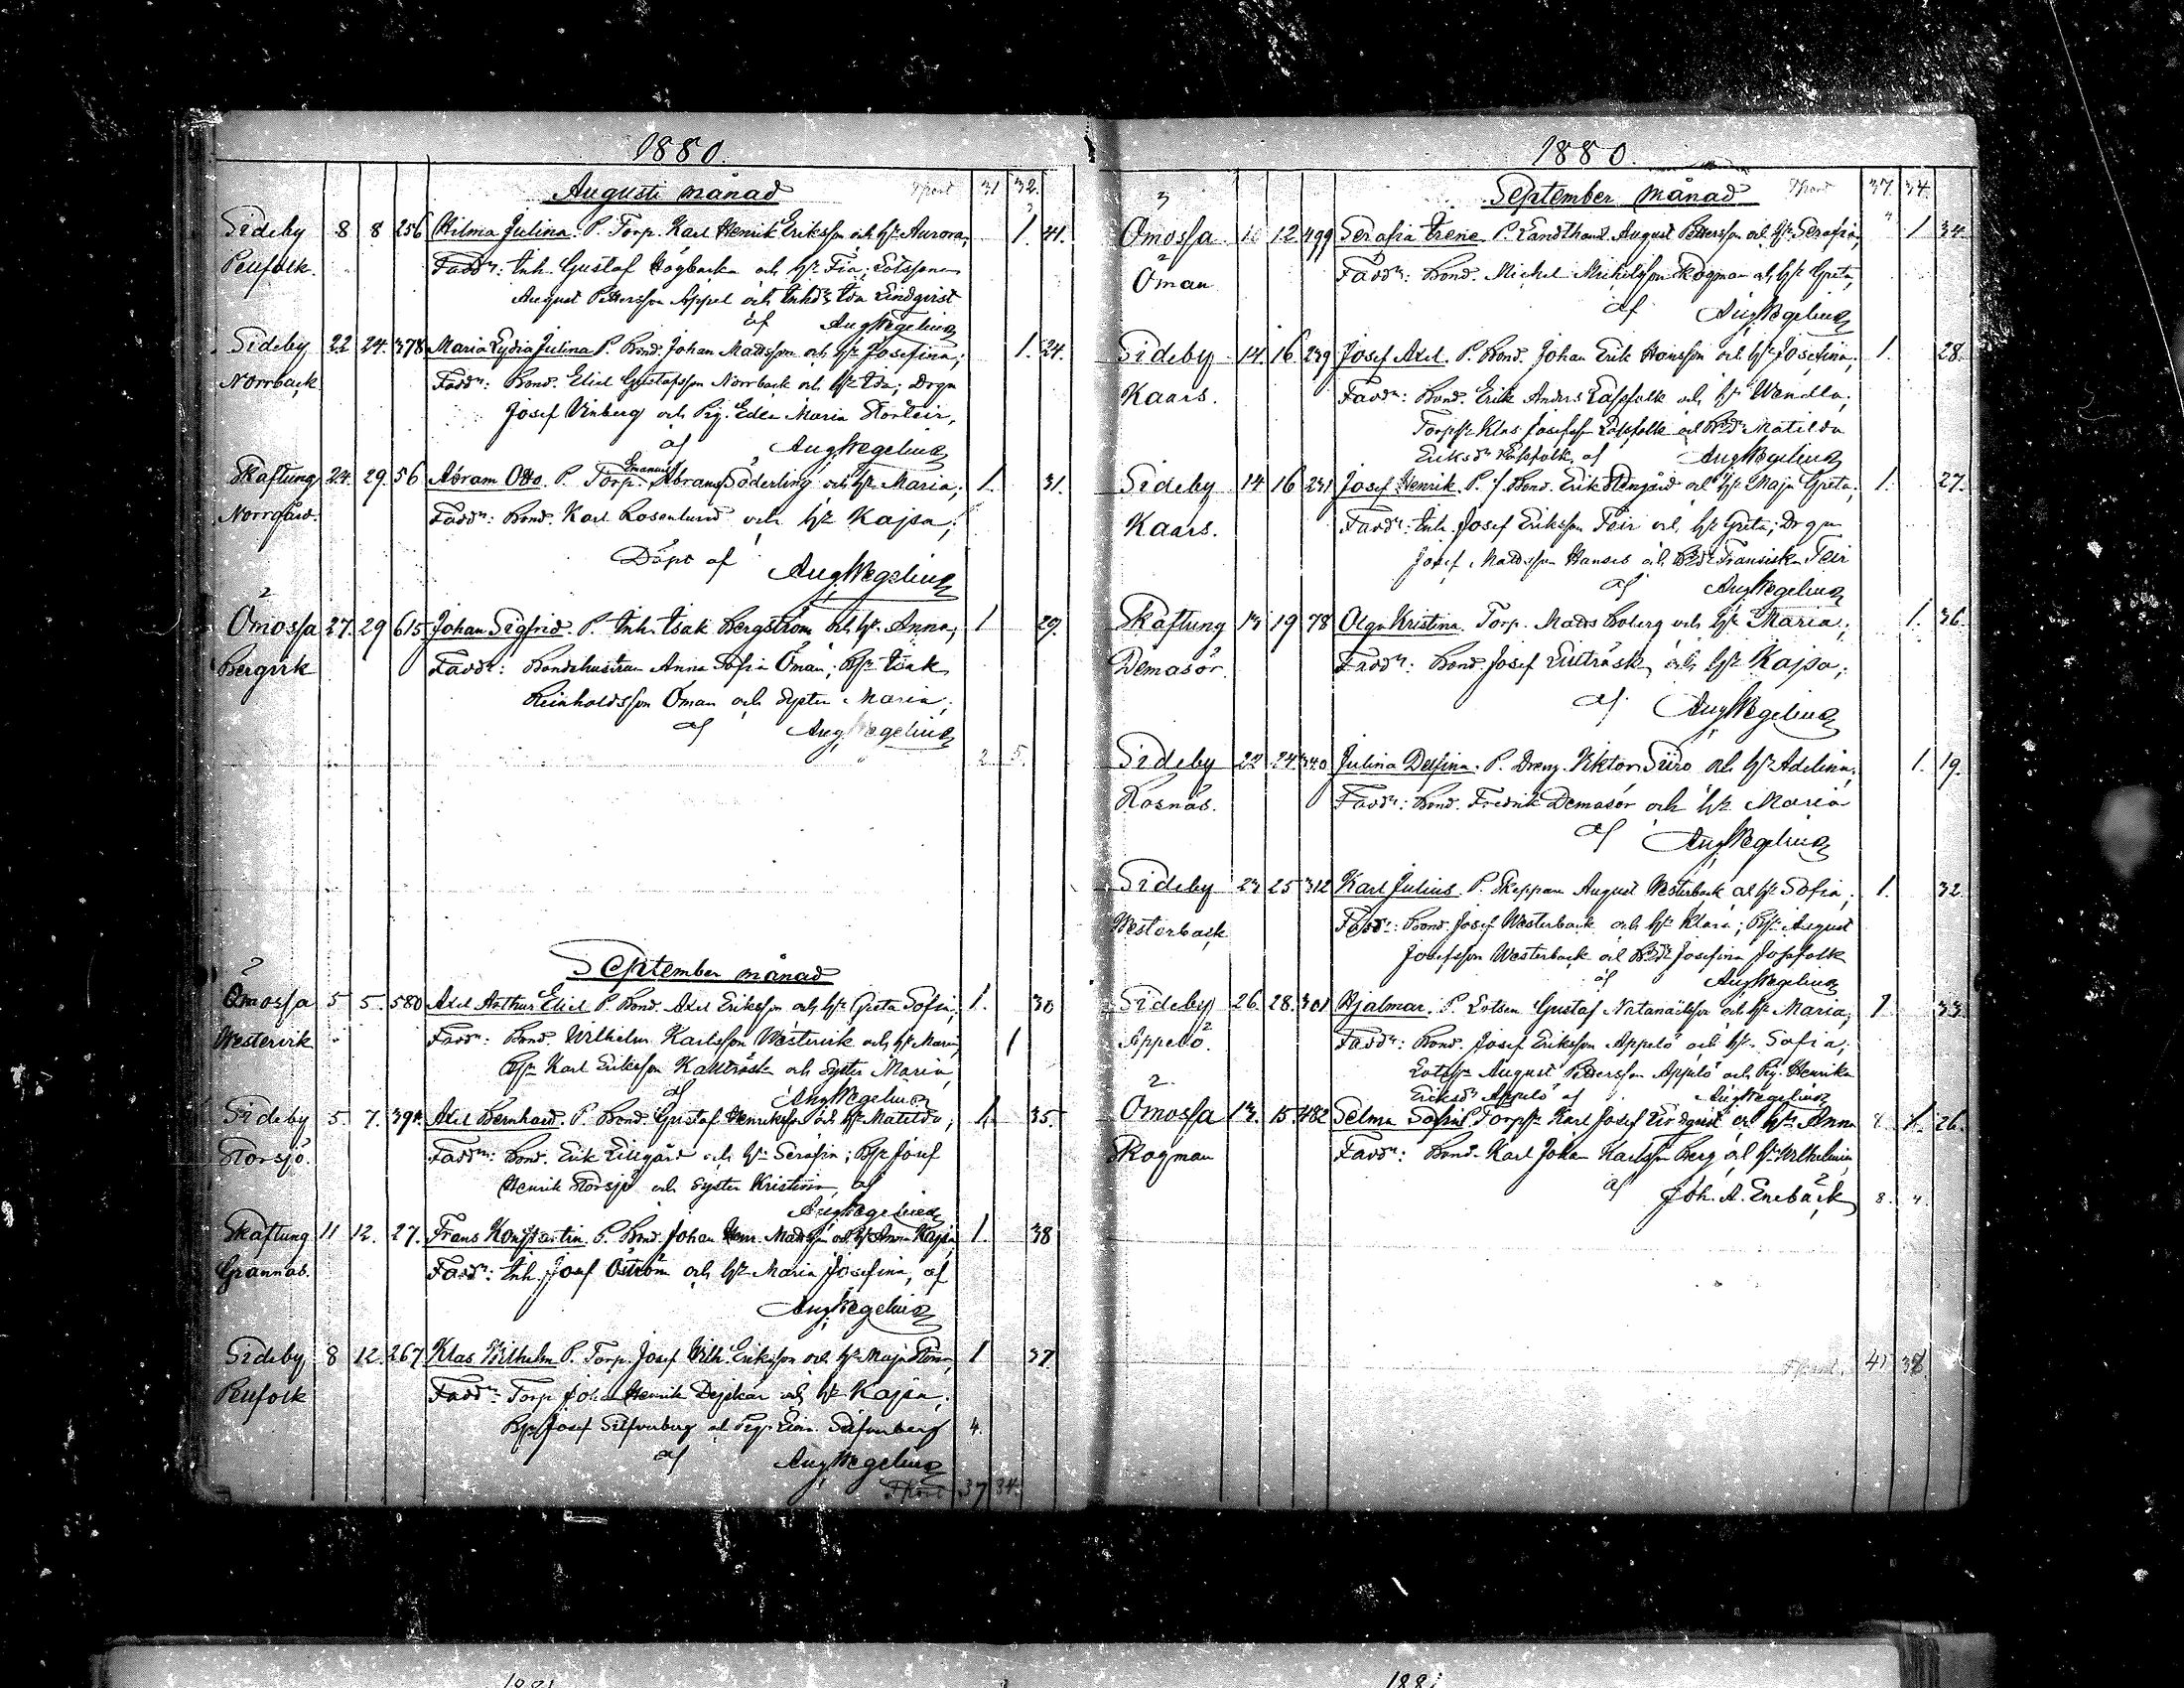 1880.
Augusti månad Tsport 31 32.
Sideby 8 8 256 Hilma Julina. P. Torp. Karl Henrik Eriksson och hs: Aurora, 1. 41.
Penfolk. Faddr: Inh. Gustaf Högbacka och hs: Fia; Lotssonen
August Pettersson Appel och Inhdr Ida Lindqvist
af AugWegelius
Sideby 22 24. 378 Maria Lydia Julina P. Bond. Johan Mattsson och hs: Josefina; 1. 24.
Norrback Faddr: Bond. Eliel Gustafsson Norrback och hs: Ida; Drgn
Josef Vinberg och Pig. Edla Maria Storteir,
af AugWegelius
Skaftung 24. 29. 56 Abram Otto. P. Torp. Emanuel Abramss Söderling och hs: Maria; 1. 31.
Norrgård. Faddr: Bond. Karl Rosenlund och hs: Kajsa;
Döpt af AugWegelius
Ömossa 27. 29 615 Johan Sigfrid. P. Inh. Isak Bergström och hs: Anna; 1 29.
Bergvik Faddr: Bondehustrun Anna Sofia Öman; Bss: Isak
Reinholdsson Öman och Syster Maria;
af AugWegelius
2. 5.
September månad
Ömossa 5 5. 580 Axel Arthur Eliel P. Bond. Axel Eriksson och hs: Greta Sofia; 1. 30
Westervik Faddr: Bond. Wilhelm Karlsson Westervik och hs: Maria, 1
Bss: Karl Eriksson Kallträsk och Syster Maria,
af AugWegelius
Sideby 5. 7. 391. Axel Bernhard. P. Bond. Gustaf Henriksson och hs: Matilda; 1. 35.
Storsjö. Faddr: Bond. Erik Lillgård och hs: Serafia; Bss: Josef
Henrik Storsjö och Syster Kristina, af
AugWegelius
Skaftung 11 12. 27. Frans Konstantin. P. Bond. Johan Henr. Mattsson och hs: Anna Kajsa, 1. 38
Grannas. Faddr: Inh. Josef Öström och hs: Maria Josefina, af
AugWegelius
Sideby 8 12. 267 Klas Wilhelm P. Torp. Josef Wilh. Eriksson och hs: Maja 1 37
Penfolk Faddr: Torp. Johan Henrik Dejskär och hs: Kajsa;
Bss: Josef Silfverberg och Pig. Silfverberg 4.
af AugWegelius
Tsport 37 34.
1880.
September månad Tsport 37. 34.
Ömossa 10 12 499 Serafia Irene. P. Landthand. August Pettersson och hs: Serafia; " 1 34
Öman Faddr: Bond. Mickel Mickelsson Skogman och hs: Greta,
af AugWegelius
Sideby 14. 16. 239 Josef Axel. P. Bond. Johan Erik Hansson och hs: Josefina; 1. 28.
Kaars. Faddr: Bond. Erik Anders Lassfolk och hs: Wendla;
Torpss: Klas Josefsson Lassfolk och Bdr: Matilda
Eriksdr Lassfolk, af AugWegelius
Sideby 14 16 231 Josef Henrik. P. f. Bond. Erik och hs: Maja Greta; 1. 27.
Kaars. Faddr: Inh. Josef Eriksson Teir och hs: Greta; Drgn
Josef Mattsson Hanses och Bdr: Fransiska Teir
af AugWegelius
Skaftung 13 19 78 Olga Kristina. Torp. Matts Boberg och hs: Maria; 1. 36.
Demasör. Faddr: Bond. Josef Lillträsk och hs: Kajsa;
af AugWegelius
Sideby 22 24. 340 Julina Delfina. P. Dreng. Viktor Siiro och hs: Adelina; 1. 19.
Rosnäs. Faddr: Bond. Fredrik Demasör och hs: Maria
af AugWegelius
Sideby 23 25 312 Karl Julius. P. Skeppare August Westerback och hs: Sofia; 1. 32.
Westerback Faddr: Bond. Josef Westerback och hs: Klara; Bss: August
Josefsson Westerback och Bdr: Josefina Jossfolk
af AugWegelius
Sideby 26 28. 301 Hjalmar. P. Lotsen Gustaf Natanaelsson och hs: Maria; 1 33.
Appelö. Faddr: Bond. Josef Eriksson Appelö och hs: Sofia;
Lotsss: August Pettersson Appelö och Pig. Henrika
Eriksdr Appelö af AugWegelius
Ömossa 13. 15. 482 Selma Sofia. Torpss: Karl Josef Lindqvist och hs: Anna 1. 26.
Skogman Faddr: Bond. Karl Johan Karlsson Berg och hs: Wilhelmina
af Joh. A. Enebäck 8. 4.
Tsport. 41 38
1881
1881